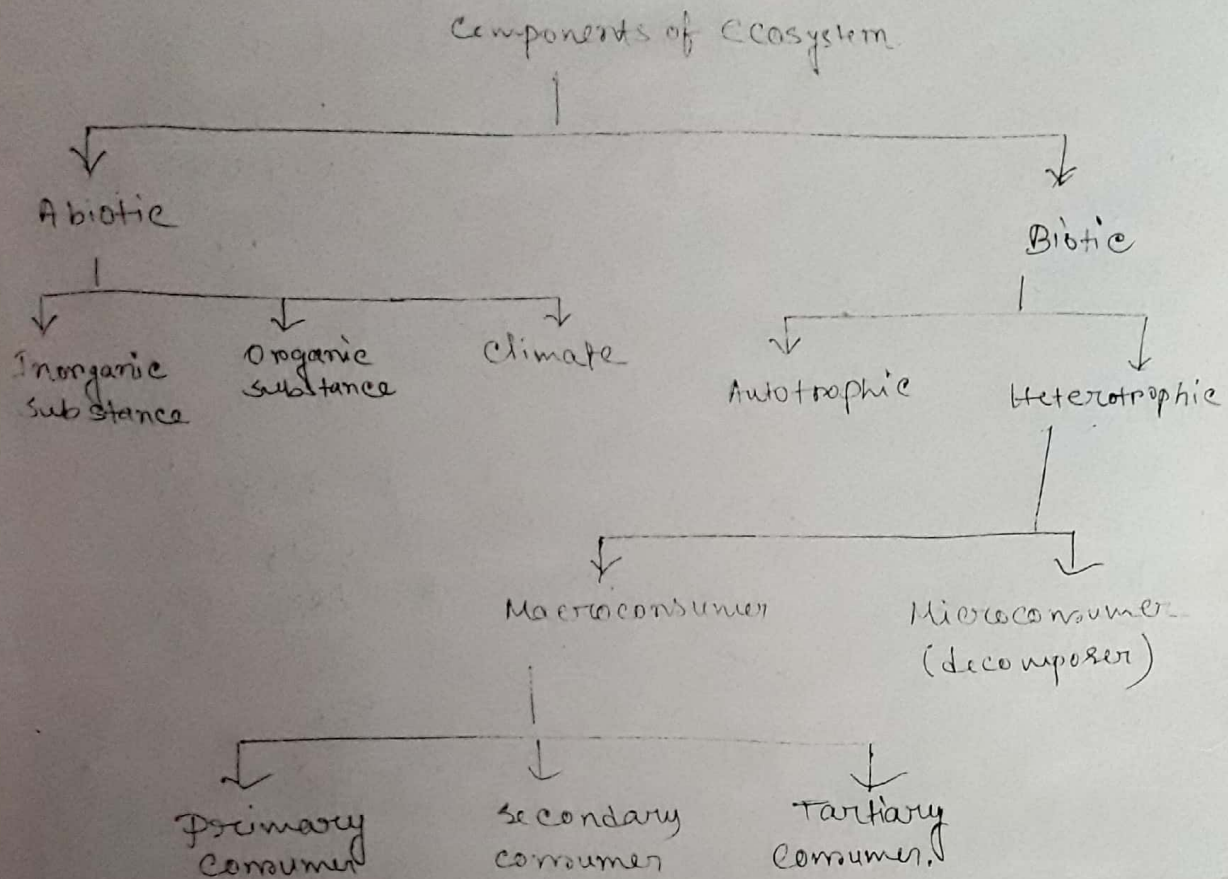 Components of Ecosystem
Abiotic
Biotic
Inorganic
substance
Organic
substance
Climate
Autotrophic
Heterotrophic
Macroconsumer
Microconsumer
(decomposer)
Primary
consumer
Secondary
consumer
Tartiary
consumer.